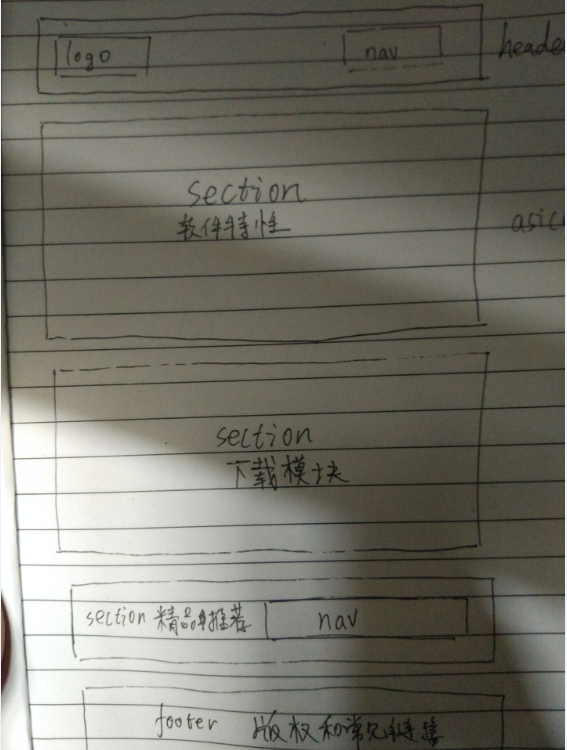 logo
nav
heade
section
软件特性
asic
section
下载模块
section 精品推荐
nav
footer 版权和常见链接